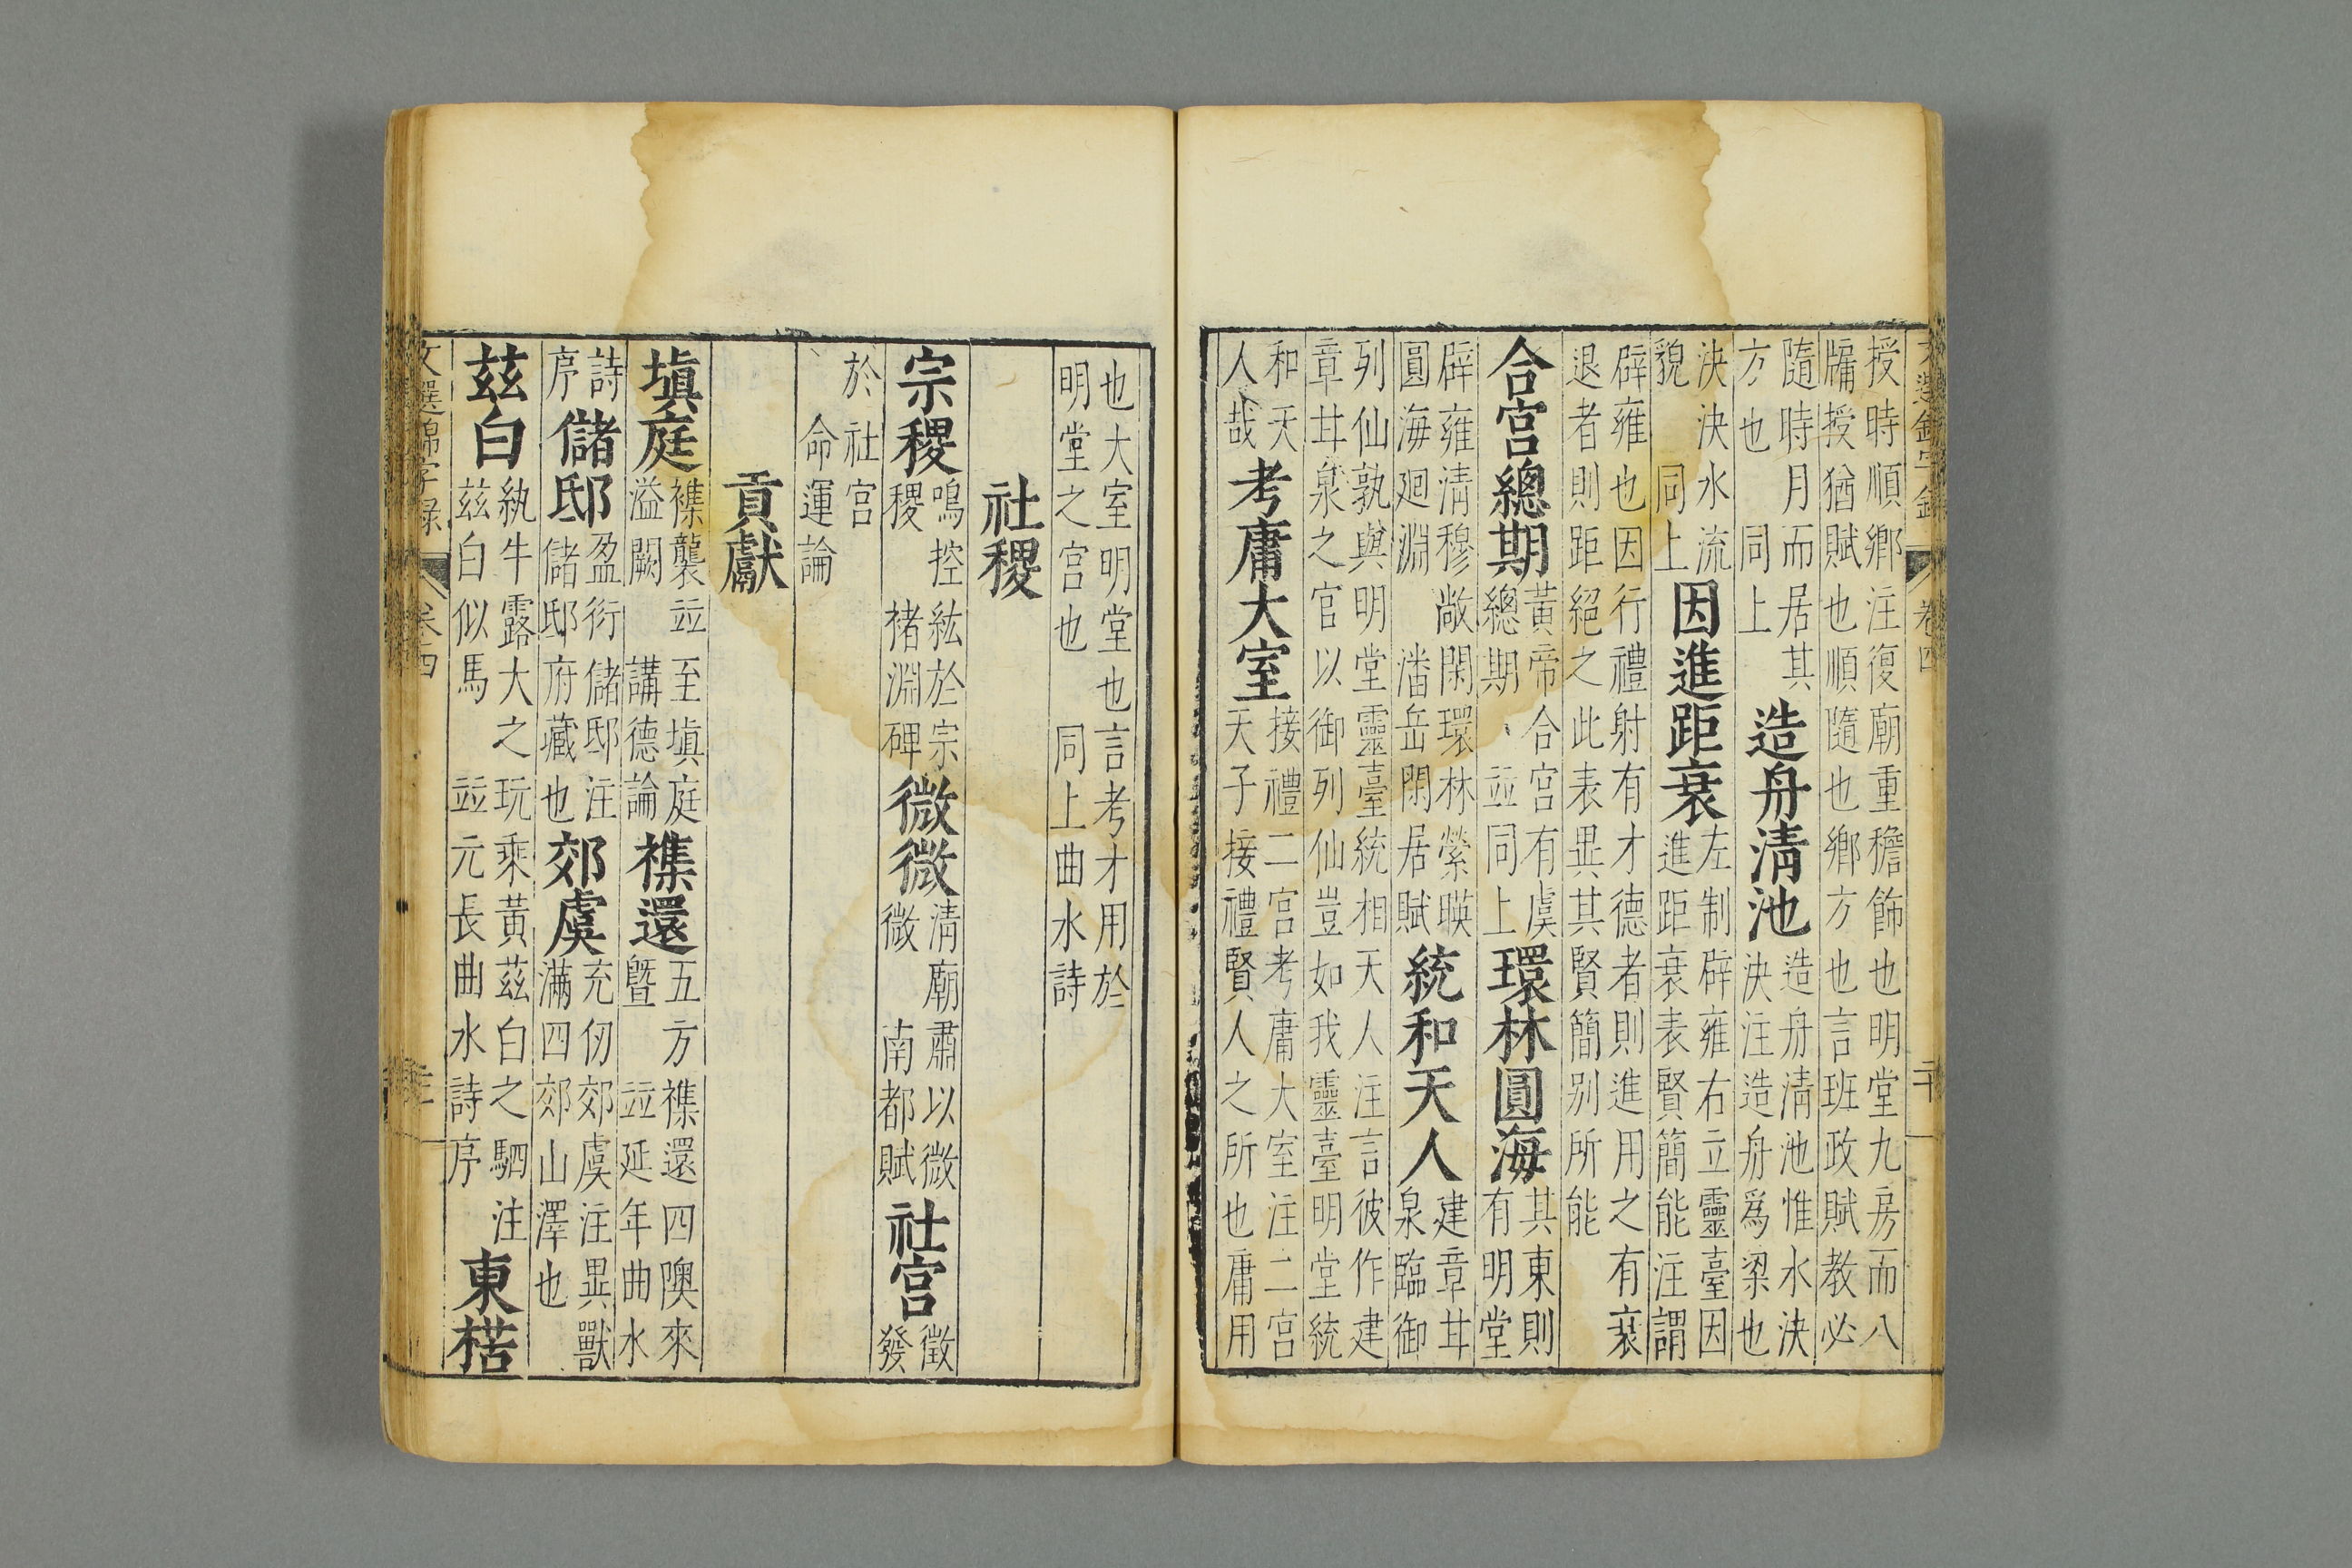 文選錦字錄 卷四 二十
授時順鄉注復廟重檐飾也明堂九房而八
牖授猶賦也順隨也鄉方也言班政賦教必
隨時月而居其
方也 同上
造舟清池
造舟清池惟水泱
泱注造舟爲梁也
泱泱水流
貌 同上
因進距衰
左制辟雍右立靈臺因
進距衰表賢簡能注謂
辟雍也因行禮射有才德者則進用之有衰
退者則距絕之此表異其賢簡别所能
合宮總期
黃帝合宮有虞
總期 並同上
環林圓海
其東則
有明堂
辟雍清穆敞閑環林縈暎
圓海廻淵 潘岳閑居賦
統和天人
建章甘
泉臨御
列仙孰與明堂靈臺統相天人注言彼作建
章甘泉之官以御列仙豈如我靈臺明堂統
和天
人哉
考庸大室
接禮二宮考庸大室注二宮
天子接禮賢人之所也庸用
也大室明堂也言考才用於
明堂之宮也 同上曲水詩
社稷
宗稷
鳴控紘於宗
稷 褚淵碑
微微
清廟肅以微
微 南都賦
社宮
徵
發
於社宮
命運論
貢獻
塡庭
襍襲並至塡庭
溢闕 講德論
襍還
五方襍還四隩來
曁 並延年曲水
詩
序
儲邸
盈衍儲邸注
儲邸府藏也
郊虞
充仞郊虞注異獸
滿四郊山澤也
茲白
紈牛露大之玩乘黃茲白之駟注
茲白似馬 並元長曲水詩序
東楛
文選錦字錄 卷四